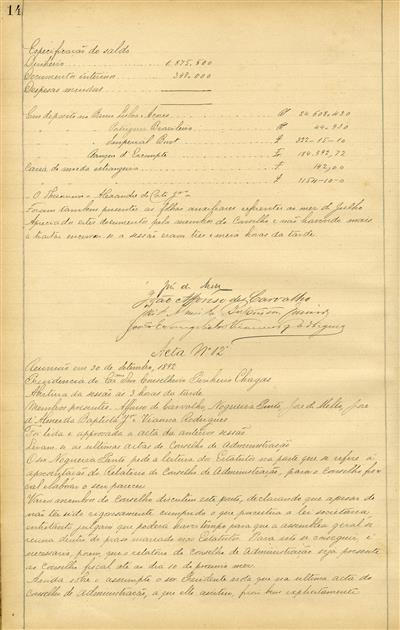 14
Especificação do saldo
Dinheiro 1.875,800
Documentos internos 348,000
Despesas miudas
Em deposito no Banco Lisboa & Açores 24.608,430
Portuguez Brazileiro 44,930
Imperial Brit £ 322-15-10
Comp. d'Escompte Fr. 184.392,72
Caixa de moeda estrangeira F. 142,00
£
O Thesoureiro = Alexandre da Costa
Foram tambem presentes as folhas auxiliares referentes ao mez de Julho
Apreciados estes documentos pelos membros do Conselho e não havendo mais
a tratar encerrou-se a sessão eram tres e meia horas da tarde.
João Affonso de Carvalho
Acta Nº 12
Reunião em 30 de Setembro, 1892
Presidencia do Exmo Snr Conselheiro Pinheiro Chagas
Abertura da sessão ás 3 horas da tarde
Membros presentes: Affonso de Carvalho, Nogueira Pinto, José de Mello, José
d'Almeida Baptista Jor Vianna Rodrigues
Foi lida e approvada a acta da anterior sessão
Leram-se as ultimas actas do Conselho de Administração
O snr Nogueira Pinto pede a leitura dos Estatutos na parte que se refere á
apresentação do Relatorio do Conselho de Administração, para o Conselho fis-
cal elaborar o seu parecer
Varios membros do Conselho discutem este ponto, declarando que apesar de
não ter sido rigorosamente cumprido o que preceitua a lei societaria
entretanto julgam que poderá haver tempo para que a assembléa geral se
reuna dentro do praso marcado nos Estatutos. Para este se conseguir, é
necessario, porem, que o relatorio do Conselho de Administração seja presente
ao Conselho fiscal até ao dia 10 do proximo mez.
Ainda sobre o assumpto o snr Presidente nota que na ultima acta do
Conselho de Administração, a que elle assistiu, ficou bem explicitamente